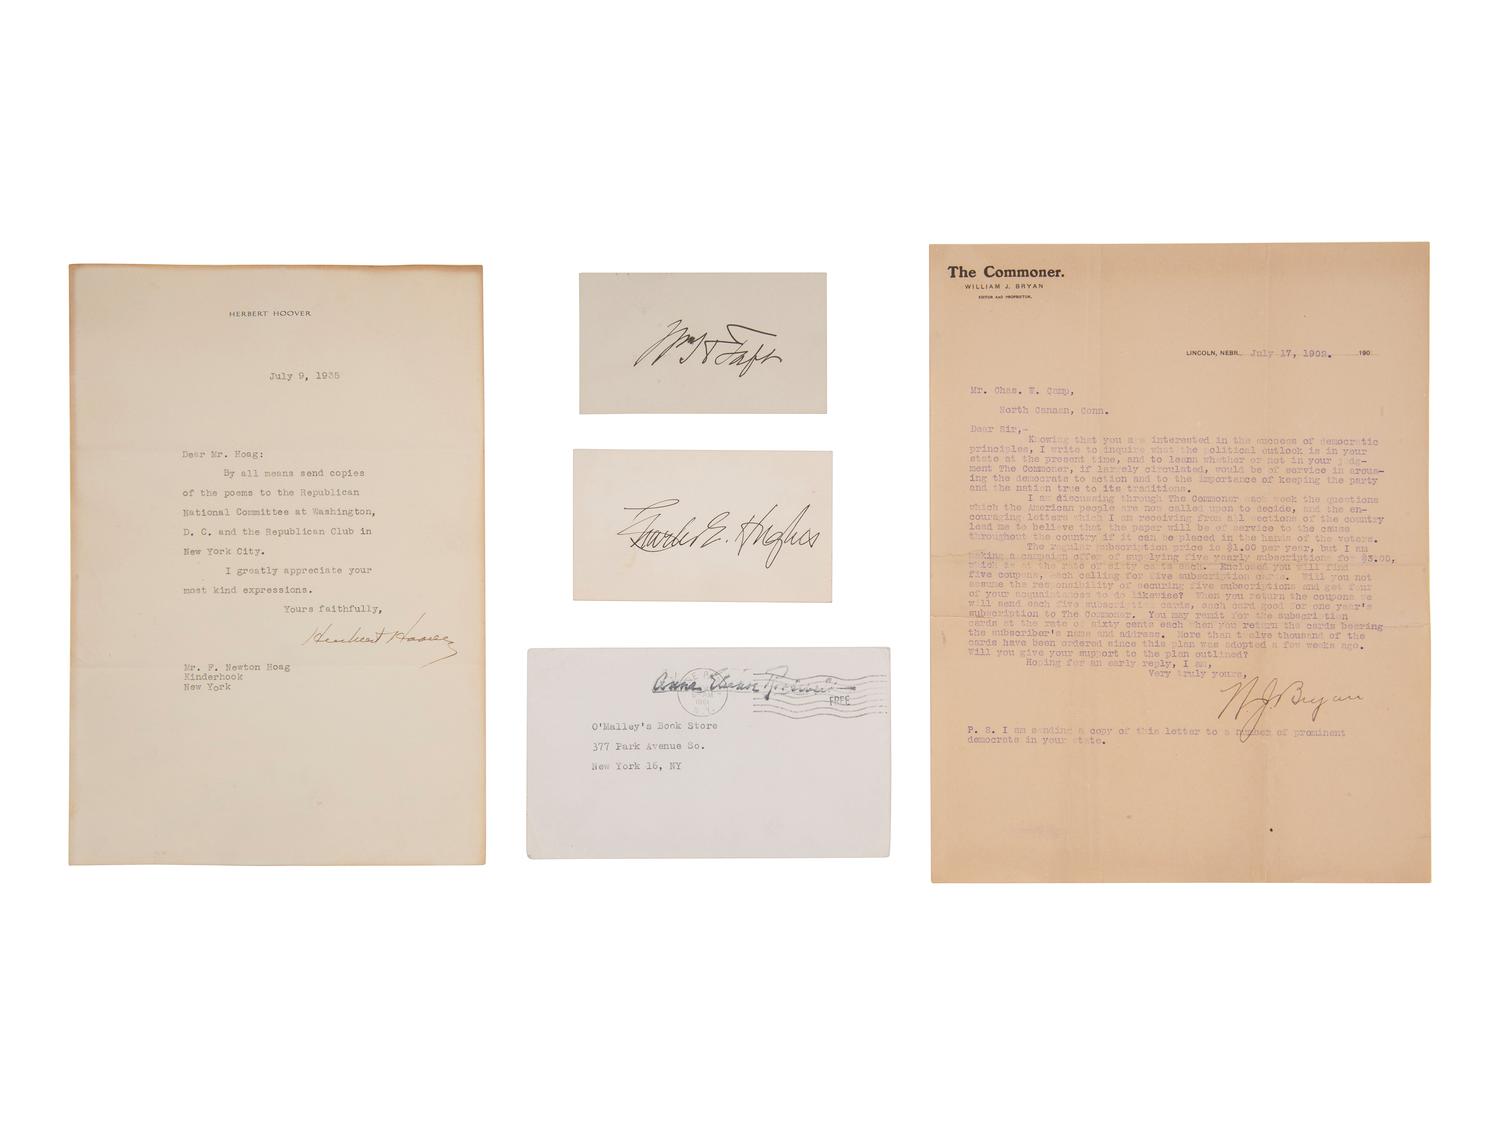 HERBERT HOOVER
July 9, 1935
Dear Mr. Hoag:
By all means send copies
of the poems to the Republican
National Committee at Washington,
D. C. and the Republican Club in
New York City.
I greatly appreciate your
most kind expressions.
Yours faithfully,
Herbert Hoover
Mr. F. Newton Hoag
Kinderhook
New York
Wm H Taft
Charles E. Hughes
Anna Eleanor Roosevelt
FREE
O'Malley's Book Store
377 Park Avenue So.
New York 16, NY
The Commoner.
WILLIAM J. BRYAN
EDITOR AND PROPRIETOR.
LINCOLN, NEBR., July 17, 1902. 190
Mr. Chas. W. Camp,
North Canaan, Conn.
Dear Sir,-
Knowing that you are interested in the success of democratic
principles, I write to inquire what the political outlook is in your
state at the present time, and to learn whether or not in your judg-
ment The Commoner, if largely circulated, would be of service in arous-
ing the democrats to action and to the importance of keeping the party
and the nation true to its traditions.
I am discussing through The Commoner each week the questions
which the American people are now called upon to decide, and the en-
couraging letters which I am receiving from all sections of the country
lead me to believe that the paper will be of service to the cause
throughout the country if it can be placed in the hands of the voters.
The regular subscription price is $1.00 per year, but I am
making a campaign offer of supplying five yearly subscriptions for $3.00,
which is at the rate of sixty cents each. Enclosed you will find
five coupons, each calling for five subscription cards. Will you not
assume the responsibility of securing five subscriptions and get four
of your acquaintances to do likewise? When you return the coupons we
will send each five subscription cards, each card good for one year's
subscription to The Commoner. You may remit for the subscription
cards at the rate of sixty cents each when you return the cards bearing
the subscriber's name and address. More than twelve thousand of the
cards have been ordered since this plan was adopted a few weeks ago.
Will you give your support to the plan outlined?
Hoping for an early reply, I am,
Very truly yours,
W. J. Bryan
P. S. I am sending a copy of this letter to a number of prominent
democrats in your state.